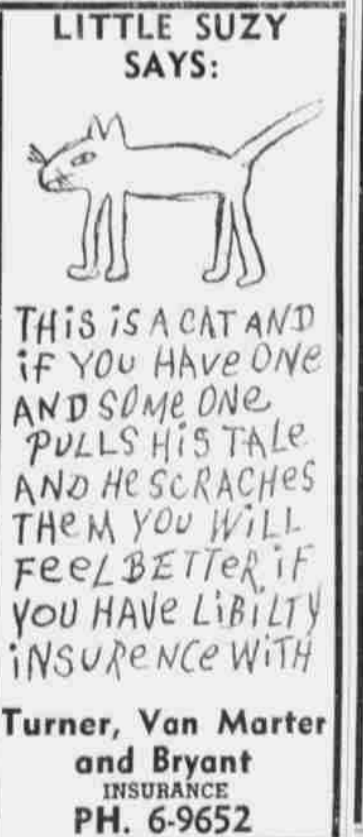 LITTLE SUZY
SAYS:
THiS iS A CAT AND
iF YOU HAVe ONe
AND SOMe ONe
PULLS HiS TALe
AND He SCRACHeS
THeM YOU WiLL
FeeL BETTeR iF
YOU HAVe LiBiLTY
iNSUReNCe WiTH
Turner, Van Marter
and Bryant
INSURANCE
PH. 6-9652